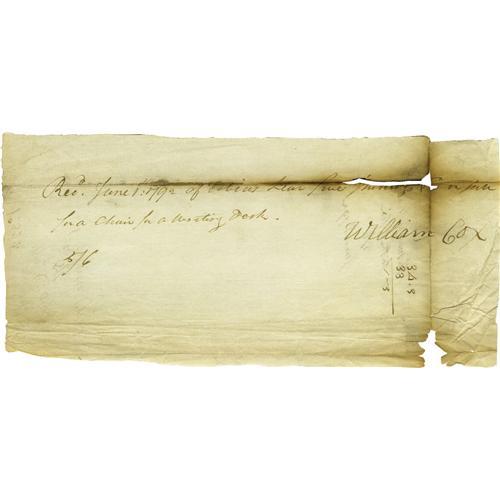 Rec.d June 1.st 1792 of Tobias Lear five in full
for a Chair for a Writing Desk.
William Cox
5/6
34.8
33